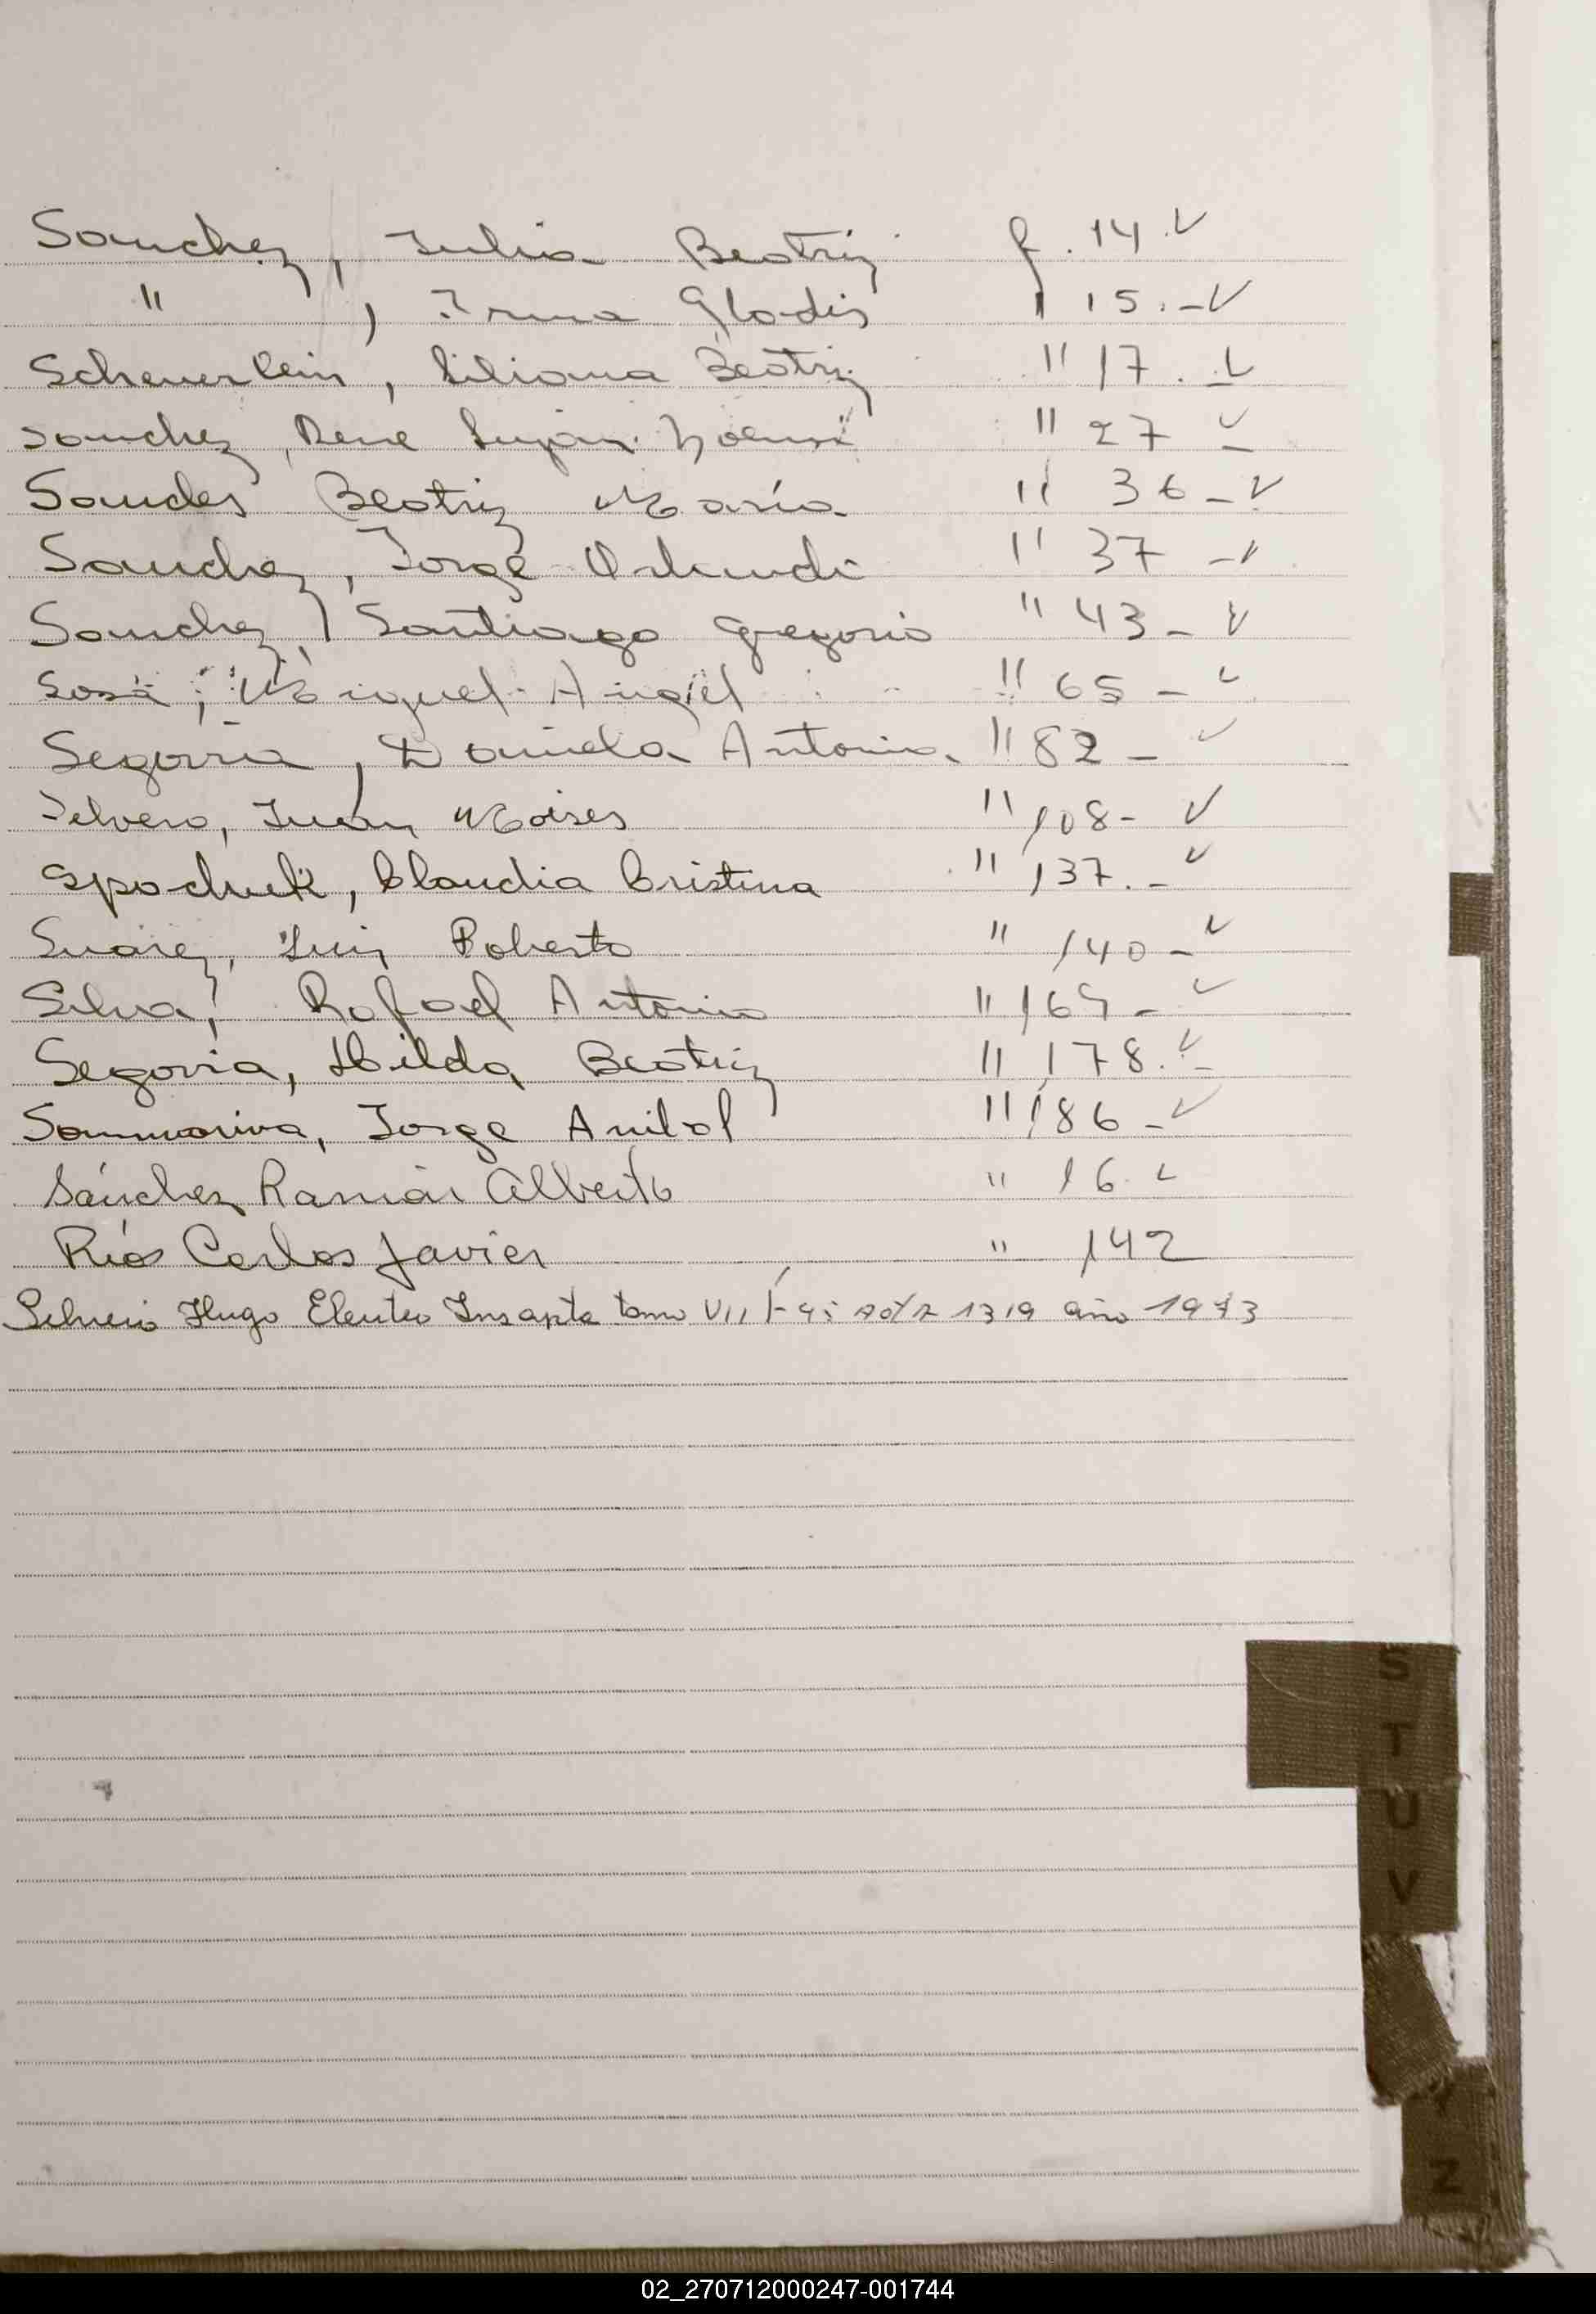 Sanchez, Julia Beatriz f. 14. ✓
" , Irma Gladis " 15. - ✓
Scheuerlein, Liliana Beatriz " 17. ✓
Sanchez, René Lujan " 27 ✓
Sandes Beatriz Maria " 36 - ✓
Sanchez, Jorge Orlando " 37 - ✓
Sanchez, Santiago Gregorio " 43 - ✓
Sosa, Miguel Angel " 65 - ✓
Segovia, Daniela Antonia " 82 - ✓
Silvero, Juan Moises " 108 - ✓
Spachuk, Claudia Cristina " 137. - ✓
Suarez, Luis Roberto " 140 - ✓
Silva, Rafael Antonio " 169 - ✓
Segovia, Hilda Beatriz " 178. - ✓
Sammariva, Jorge Anibal " 186 - ✓
Sánchez Ramón Alberto " 16. ✓
Ríos Carlos Javier " 142
Silverio Hugo Eleuterio Inscripta tomo VII 1319 año
S
T
U
V
Y
Z
02_270712000247-001744